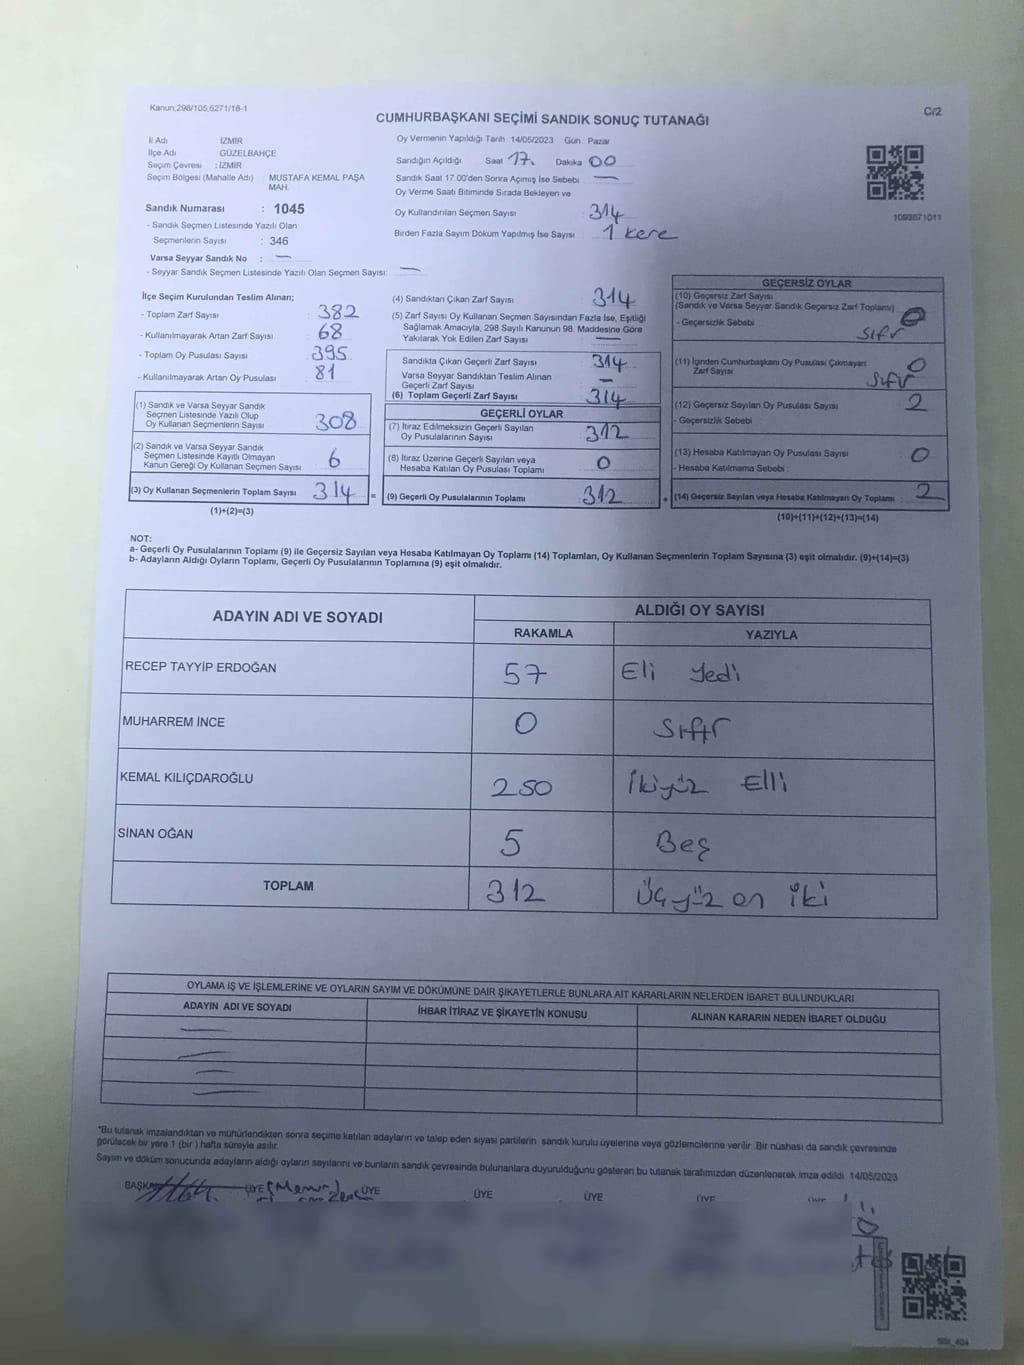 Kanun;298/105,6271/18-1
C/2
CUMHURBAŞKANI SEÇİMİ SANDIK SONUÇ TUTANAĞI
İl Adı İZMİR
İlçe Adı GÜZELBAHÇE
Seçim Çevresi : İZMİR
Seçim Bölgesi (Mahalle Adı) : MUSTAFA KEMAL PAŞA
MAH.
Sandık Numarası : 1045
- Sandık Seçmen Listesinde Yazılı Olan
Seçmenlerin Sayısı : 346
Varsa Seyyar Sandık No : —
- Seyyar Sandık Seçmen Listesinde Yazılı Olan Seçmen Sayısı: —
Oy Vermenin Yapıldığı Tarih 14/05/2023 Gün : Pazar
Sandığın Açıldığı Saat 17. Dakika 00
Sandık Saat 17.00'den Sonra Açımış İse Sebebi : —
Oy Verme Saati Bitiminde Sırada Bekleyen ve
Oy Kullandırılan Seçmen Sayısı : 314
Birden Fazla Sayım Döküm Yapılmış İse Sayısı 1 kere
1093571011
İlçe Seçim Kurulundan Teslim Alınan;
- Toplam Zarf Sayısı : 382
- Kullanılmayarak Artan Zarf Sayısı : 68
- Toplam Oy Pusulası Sayısı : 395
- Kullanılmayarak Artan Oy Pusulası : 81
(1) Sandık ve Varsa Seyyar Sandık
Seçmen Listesinde Yazılı Olup
Oy Kullanan Seçmenlerin Sayısı : 308
(2) Sandık ve Varsa Seyyar Sandık
Seçmen Listesinde Kayıtlı Olmayan
Kanun Gereği Oy Kullanan Seçmen Sayısı : 6
(3) Oy Kullanan Seçmenlerin Toplam Sayısı : 314 =
(1)+(2)=(3)
(4) Sandıktan Çıkan Zarf Sayısı : 314
(5) Zarf Sayısı Oy Kullanan Seçmen Sayısından Fazla İse, Eşitliği
Sağlamak Amacıyla, 298 Sayılı Kanunun 98. Maddesine Göre
Yakılarak Yok Edilen Zarf Sayısı : —
Sandıkta Çıkan Geçerli Zarf Sayısı : 314
Varsa Seyyar Sandıktan Teslim Alınan
Geçerli Zarf Sayısı : —
(6) Toplam Geçerli Zarf Sayısı : 314
GEÇERLİ OYLAR
(7) İtiraz Edilmeksizin Geçerli Sayılan
Oy Pusulalarının Sayısı : 312
(8) İtiraz Üzerine Geçerli Sayılan veya
Hesaba Katılan Oy Pusulası Toplamı : 0
(9) Geçerli Oy Pusulalarının Toplamı : 312 +
GEÇERSİZ OYLAR
(10) Geçersiz Zarf Sayısı
(Sandık ve Varsa Seyyar Sandık Geçersiz Zarf Toplamı) : 0
- Geçersizlik Sebebi : Sıfır
(11) İçinden Cumhurbaşkanı Oy Pusulası Çıkmayan
Zarf Sayısı : 0
Sıfır
(12) Geçersiz Sayılan Oy Pusulası Sayısı : 2
- Geçersizlik Sebebi :
(13) Hesaba Katılmayan Oy Pusulası Sayısı : 0
- Hesaba Katılmama Sebebi :
(14) Geçersiz Sayılan veya Hesaba Katılmayan Oy Toplamı : 2
(10)+(11)+(12)+(13)=(14)
NOT:
a- Geçerli Oy Pusulalarının Toplamı (9) ile Geçersiz Sayılan veya Hesaba Katılmayan Oy Toplamı (14) Toplamları, Oy Kullanan Seçmenlerin Toplam Sayısına (3) eşit olmalıdır. (9)+(14)=(3)
b- Adayların Aldığı Oyların Toplamı, Geçerli Oy Pusulalarının Toplamına (9) eşit olmalıdır.
ADAYIN ADI VE SOYADI ALDIĞI OY SAYISI
RAKAMLA YAZIYLA
RECEP TAYYİP ERDOĞAN 57 Eli Yedi
MUHARREM İNCE 0 Sıfır
KEMAL KILIÇDAROĞLU 250 İkiyüz Elli
SİNAN OĞAN 5 Beş
TOPLAM 312 Üçyüz on iki
OYLAMA İŞ VE İŞLEMLERİNE VE OYLARIN SAYIM VE DÖKÜMÜNE DAİR ŞİKAYETLERLE BUNLARA AİT KARARLARIN NELERDEN İBARET BULUNDUKLARI
ADAYIN ADI VE SOYADI İHBAR İTİRAZ VE ŞİKAYETİN KONUSU ALINAN KARARIN NEDEN İBARET OLDUĞU
*Bu tutanak imzalandıktan ve mühürlendikten sonra seçime katılan adayların ve talep eden siyasi partilerin sandık kurulu üyelerine veya gözlemcilerine verilir. Bir nüshası da sandık çevresinde
görülecek bir yere 1 (bir ) hafta süreyle asılır.
Sayım ve döküm sonucunda adayların aldığı oyların sayılarını ve bunların sandık çevresinde bulunanlara duyurulduğunu gösteren bu tutanak tarafımızdan düzenlenerek imza edildi. 14/05/2023
BAŞKAN ÜYE (Memur) ÜYE ÜYE ÜYE ÜYE ÜYE